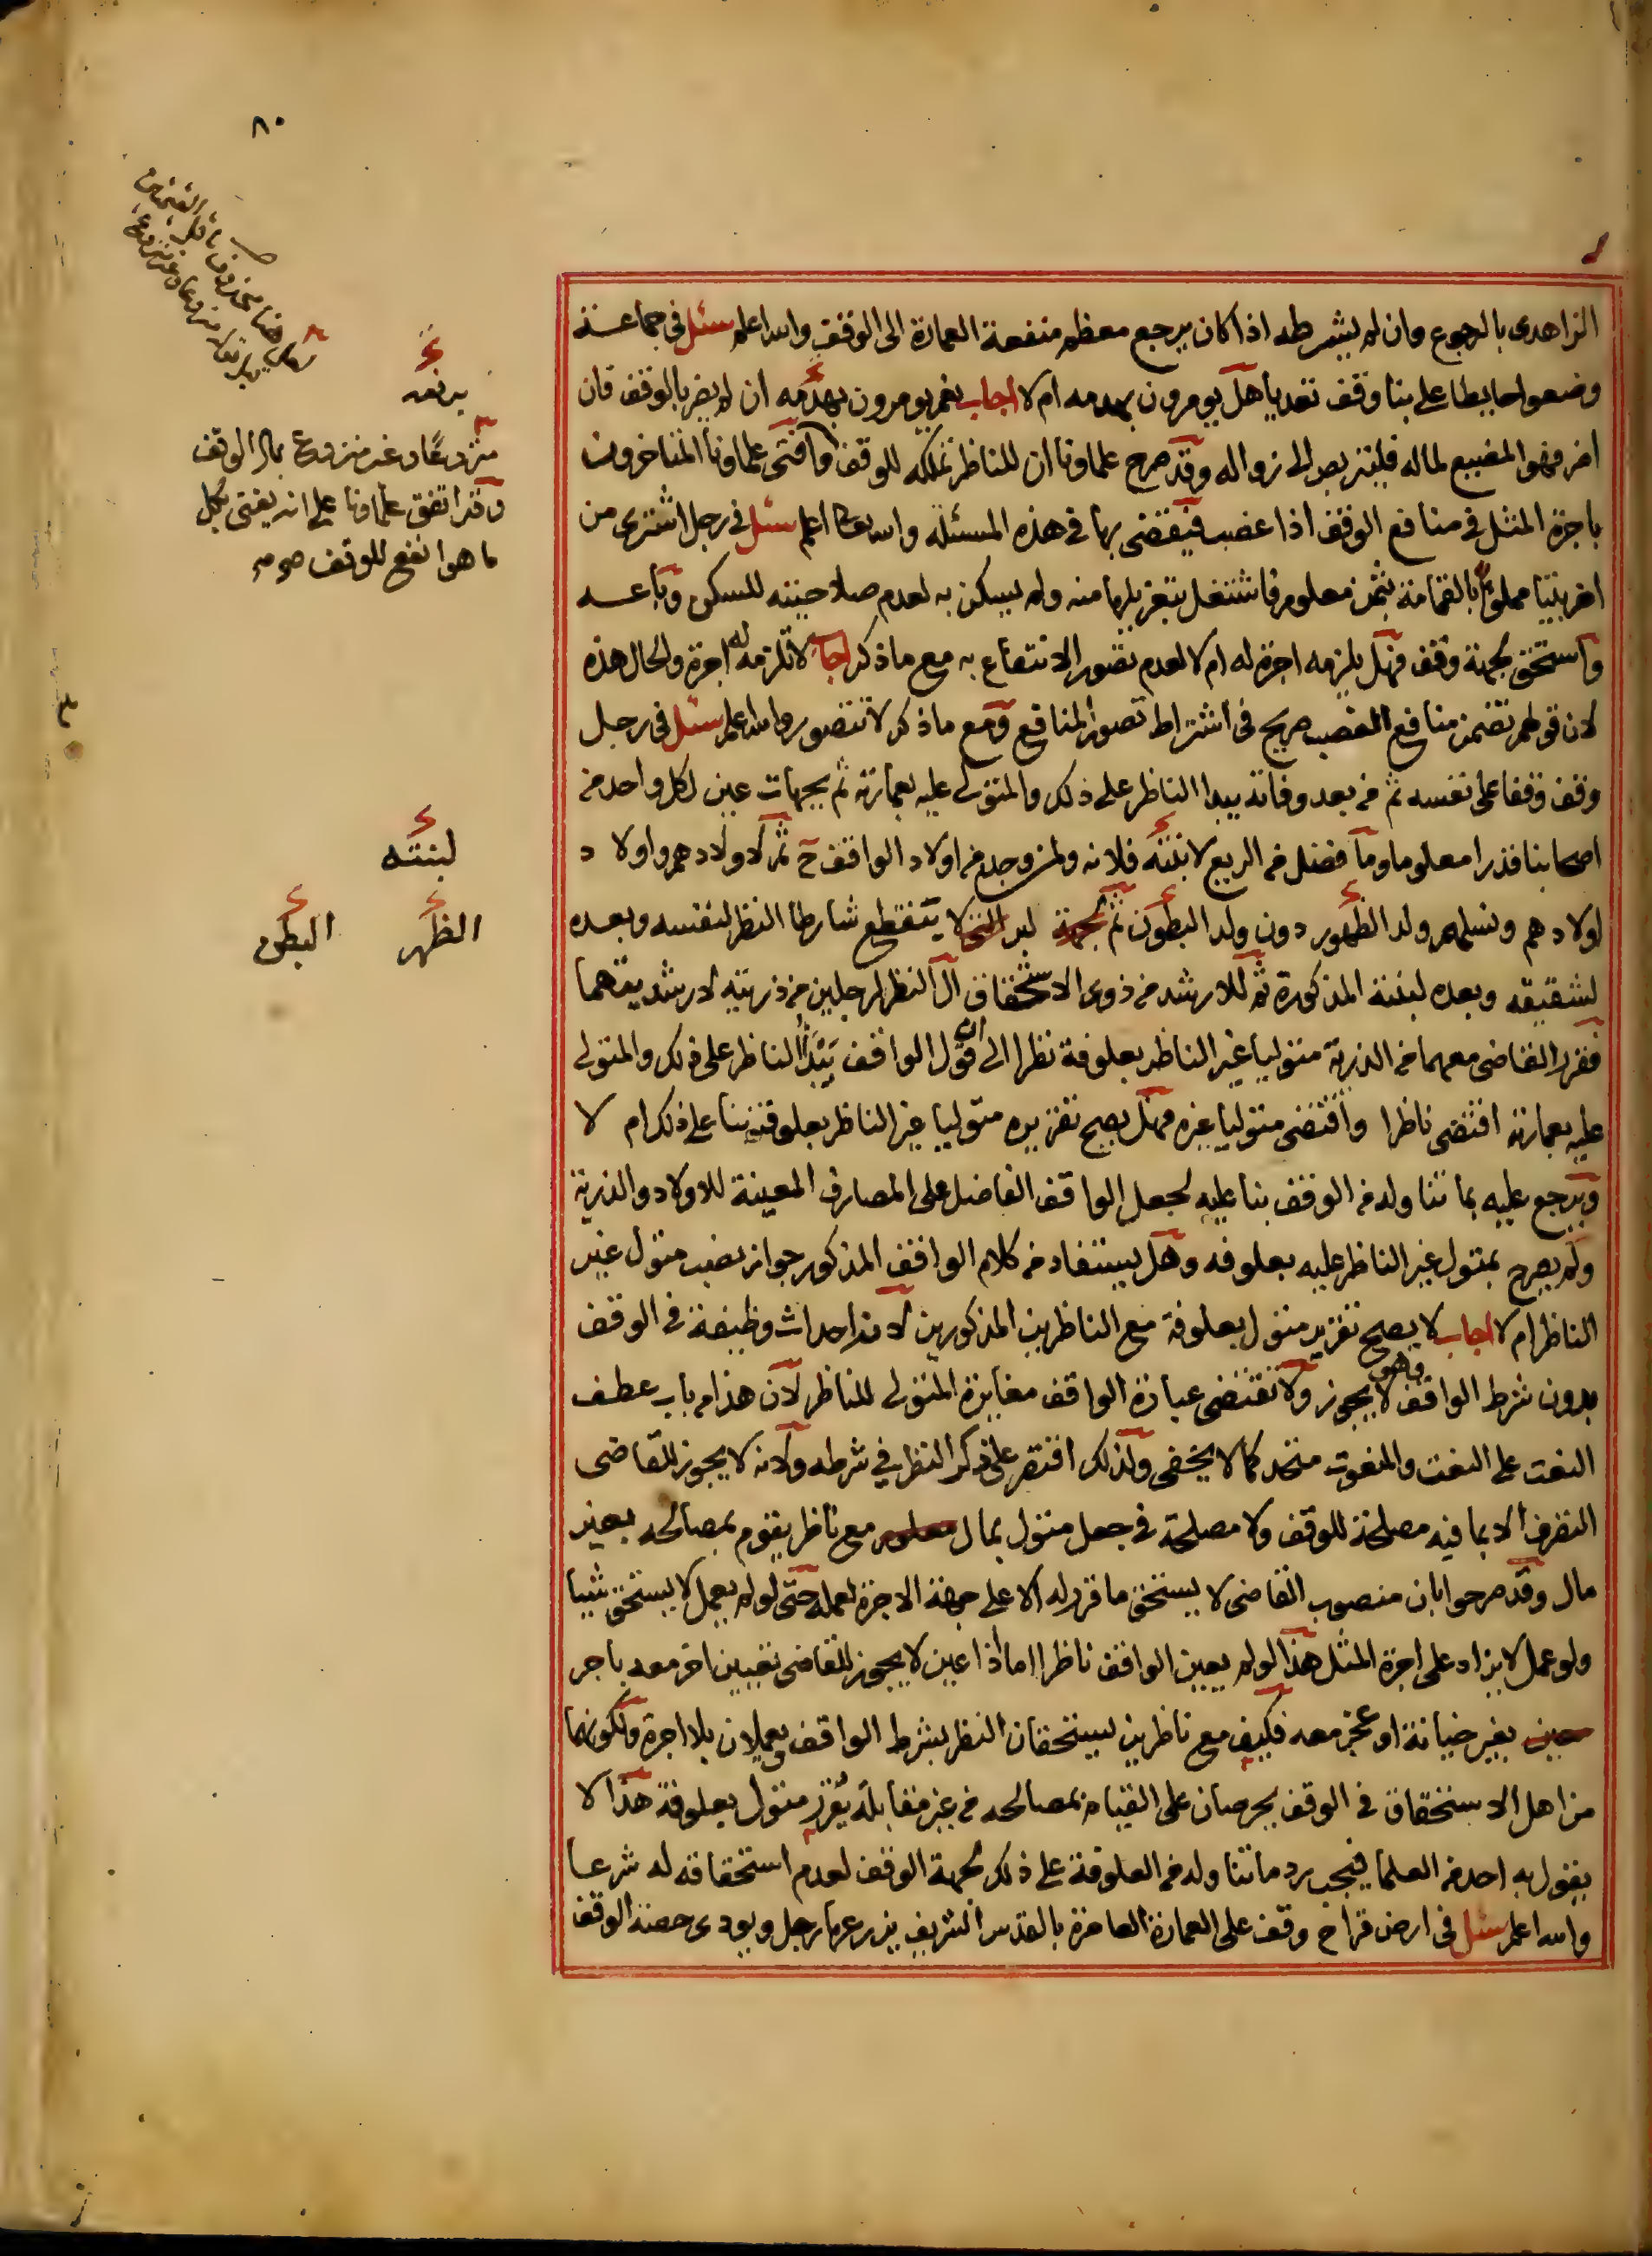 ٨٠
الزاهدى بالرجوع وان لم يشترطه اذا كان يرجع معظم منفعة العمارة الى الوقف والله اعلم سئل فى جماعة
وضعوا حايطا على بنا وقف تعديا هل يومرون بهدمه ام لا اجاب نعم يومرون بهدمه ان لم يضر بالوقف فان
اضر فهو المضيع لماله فليتربص الى زواله وقد صرح علماونا ان للناظر تملكه للوقف وافتى علماونا المتاخرون
باجرة المثل فى منافع الوقف اذا غصب فيقضى بها فى هذه المسئلة والله تعالى اعلم سئل فى رجل اشترى من
اخر بيتا مملوًا بالقمامة بثمن معلوم فاشتغل بتعزيلها منه ولم يسكن به لعدم صلاحيته للسكن وباعه
واستحق بجهة وقف فهل يلزمه اجرة له ام لا لعدم تصور الانتفاع به مع ما ذكر اجاب لا تلزمه له اجرة والحال هذه
لان قولهم تضمن منافع الغصب صريح فى اشتراط تصور المنافع ومع ما ذكر لا تتصور والله اعلم سئل فى رجل
وقف وقفا على نفسه ثم من بعد وفاته يبدا الناظر على ذلك والمتولى عليه بعمارته ثم بجهات عين لكل واحد من
اصحابنا قدرا معلوما وما فضل من الريع لابنته فلانه ولمن وجد من اولاد الواقف ح ثم لاولادهم واولاد
اولادهم ونسلهم ولد الظهور دون ولد البطون ثم لجهة بر لا يتقطع شارطا النظر لنفسه وبعده
لشقيقه وبعده لبنته المذكورة ثم للارشد من ذوى الاستحقاق ال النظر لرجلين من ذريته لارشديتهما
فقرر القاضى معهما من الذرية متوليا غير الناظر بعلوفة نظرا الى ان قول الواقف يبدا الناظر على ذلك والمتولى
عليه بعمارته اقتضى ناظرا واقتضى متوليا غيره فهل يصح تقريره متوليا غير الناظر بعلوفة بنا على ذلك ام لا
ويرجع عليه بما تناوله من الوقف بنا عليه لجعل الواقف الفاضل على المصارف المعينة للاولاد والذرية
ولم يصرح بمتول غير الناظر عليه بعلوفه وهل يستفاد من كلام الواقف المذكور جواز نصب متول غير
الناظر ام لا اجاب لا يصح تقرير متول بعلوفة مع الناظرين المذكورين لانه احداث وظيفة فى الوقف
بدون شرط الواقف وهو لا يجوز ولا تقتضى عبارة الواقف مغايرة المتولى للناظر لان هذا من باب عطف
النعت على النعت والمنعوت متحد كما لا يخفى ولذلك اقتصر على ذكر النظر فى شرطه ولانه لا يجوز للقاضى
التصرف الا بما فيه مصلحة للوقف ولا مصلحة فى جعل متول بمال معلوم مع ناظر يقوم بمصالحه بغير
مال وقد صرحوا بان منصوب القاضى لا يستحق ما قرر له الا على جهة الاجرة لعمله حتى لو لم يعمل لا يستحق شيا
ولو عمل لا يزاد على اجرة المثل هذا لو لم يعين الواقف ناظرا اما اذا عين لا يجوز للقاضى تعيين اخر معه باجر
حين بغير خيانة او عجز معه فكيف مع ناظرين يستحقان النظر بشرط الواقف ويعملان بلا اجرة ولكونهما
من اهل الاستحقاق فى الوقف يحرصان على القيام بمصالحه من غير مقابلة يقرر متول بعلوفة هذا لا
يقول به احد من العلما فيجب رد ما تناوله من العلوفة على ذلك لجهة الوقف لعدم استحقاقه له شرعا
والله اعلم سئل فى ارض قراح وقف على العمارة العامرة بالقدس الشريف يزرعها رجل ويودى حصة الوقف
برفعه
منزوعًا وغير منزوع بمال الوقف
وقد اتفق علماونا على انه يفتى بكل
ما هو انفع للوقف
لبنته
الظهر
البطن